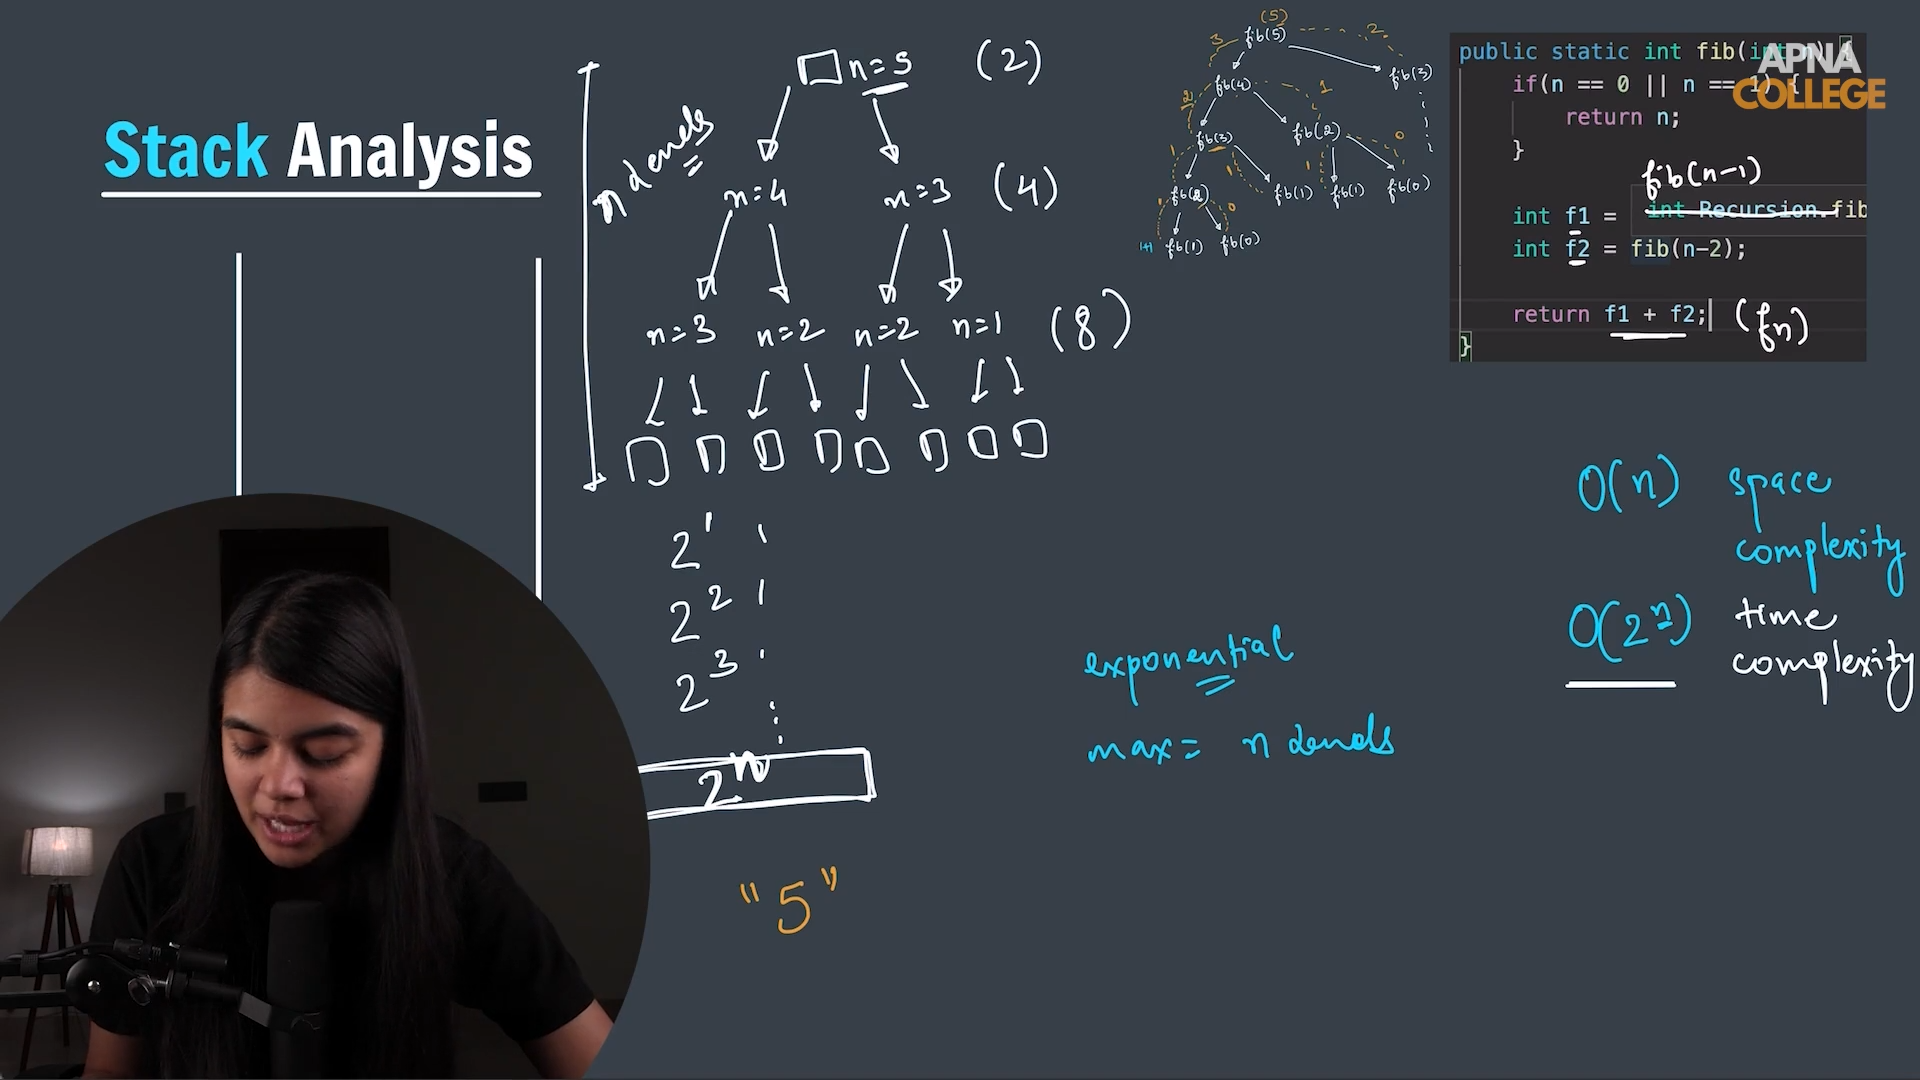 Stack Analysis
n levels
n=5 (2)
n=4 n=3 (4)
n=3 n=2 n=2 n=1 (8)
2¹
2²
2³
2ⁿ
"5"
(5)
fib(5)
3 2
fib(4) fib(3)
2 1
fib(3) fib(2)
1 1 1 0
fib(2) fib(1) fib(1) fib(0)
1 0
fib(1) fib(0)
APNA
COLLEGE
public static int fib(int n) {
if(n == 0 || n == 1) {
return n;
}
fib(n-1)
int f1 = int Recursion.fib
int f2 = fib(n-2);
return f1 + f2; (fn)
}
O(n) space
complexity
O(2ⁿ) time
complexity
exponential
max = n levels